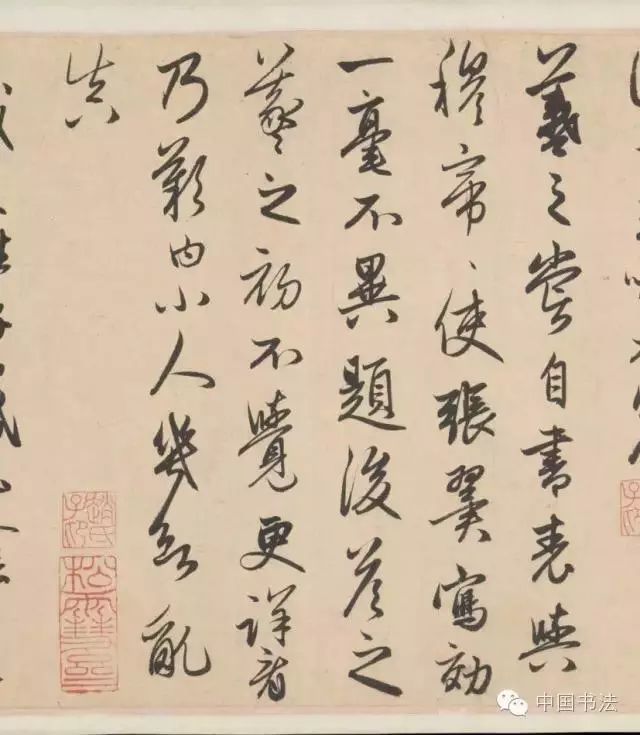 羲之甞自書表與
穆帝、使張翼寫効
一毫不異題後答之
羲之初不覺更詳看
乃歎曰小人幾欲亂
真
中国书法